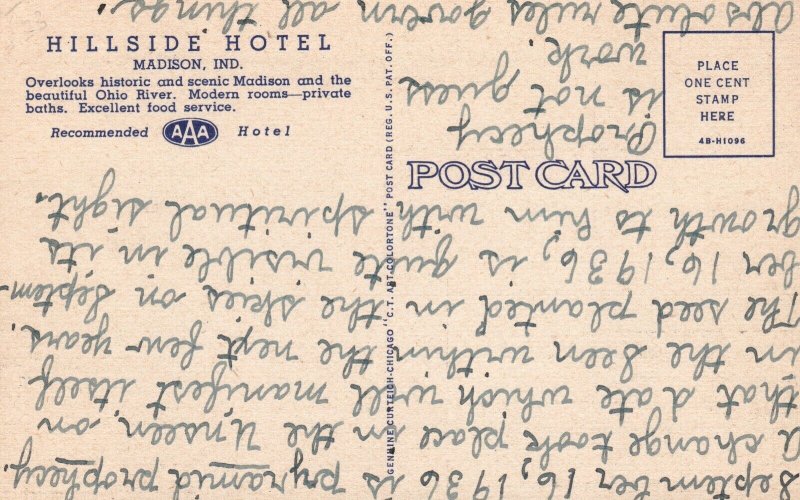 HILLSIDE HOTEL
MADISON, IND.
Overlooks historic and scenic Madison and the
beautiful Ohio River. Modern rooms—private
baths. Excellent food service.
Recommended AAA Hotel
POST CARD
PLACE
ONE CENT
STAMP
HERE
4B-H1096
GENUINE CURTEICH-CHICAGO "C.T. ART-COLORTONE" POST CARD (REG. U.S. PAT. OFF.)
September 16, 1936 is pyramid prophecy.
A change took place in the Unseen, on
that date which will manifest itself
in the Seen within the next few years.
The seed planted in the skies on Septem-
ber 16, 1936, is quite visible in its
growth to him with spiritual sight.
Prophecy
is not guess
work.
Absolute rules govern all things.